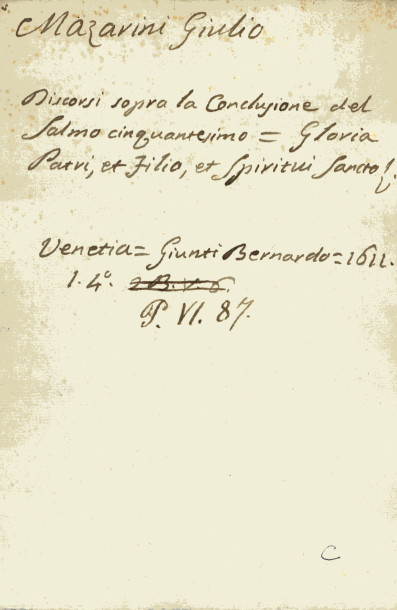 Mazarini Giulio
Discorsi sopra la Conclusione del
Salmo cinquantesimo = Gloria
Patri, et Filio, et Spiritui Sancto!.
Venetia = Giunti Bernardo = 1611.
1. 4°. 2 B. V. 6.
P. VI. 87.
C